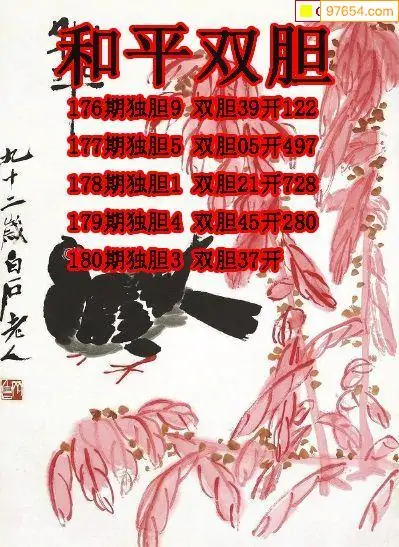 97654.com
和平双胆
176期独胆9 双胆39开122
177期独胆5 双胆05开497
178期独胆1 双胆21开728
179期独胆4 双胆45开280
180期独胆3 双胆37开
九十二岁白石老人